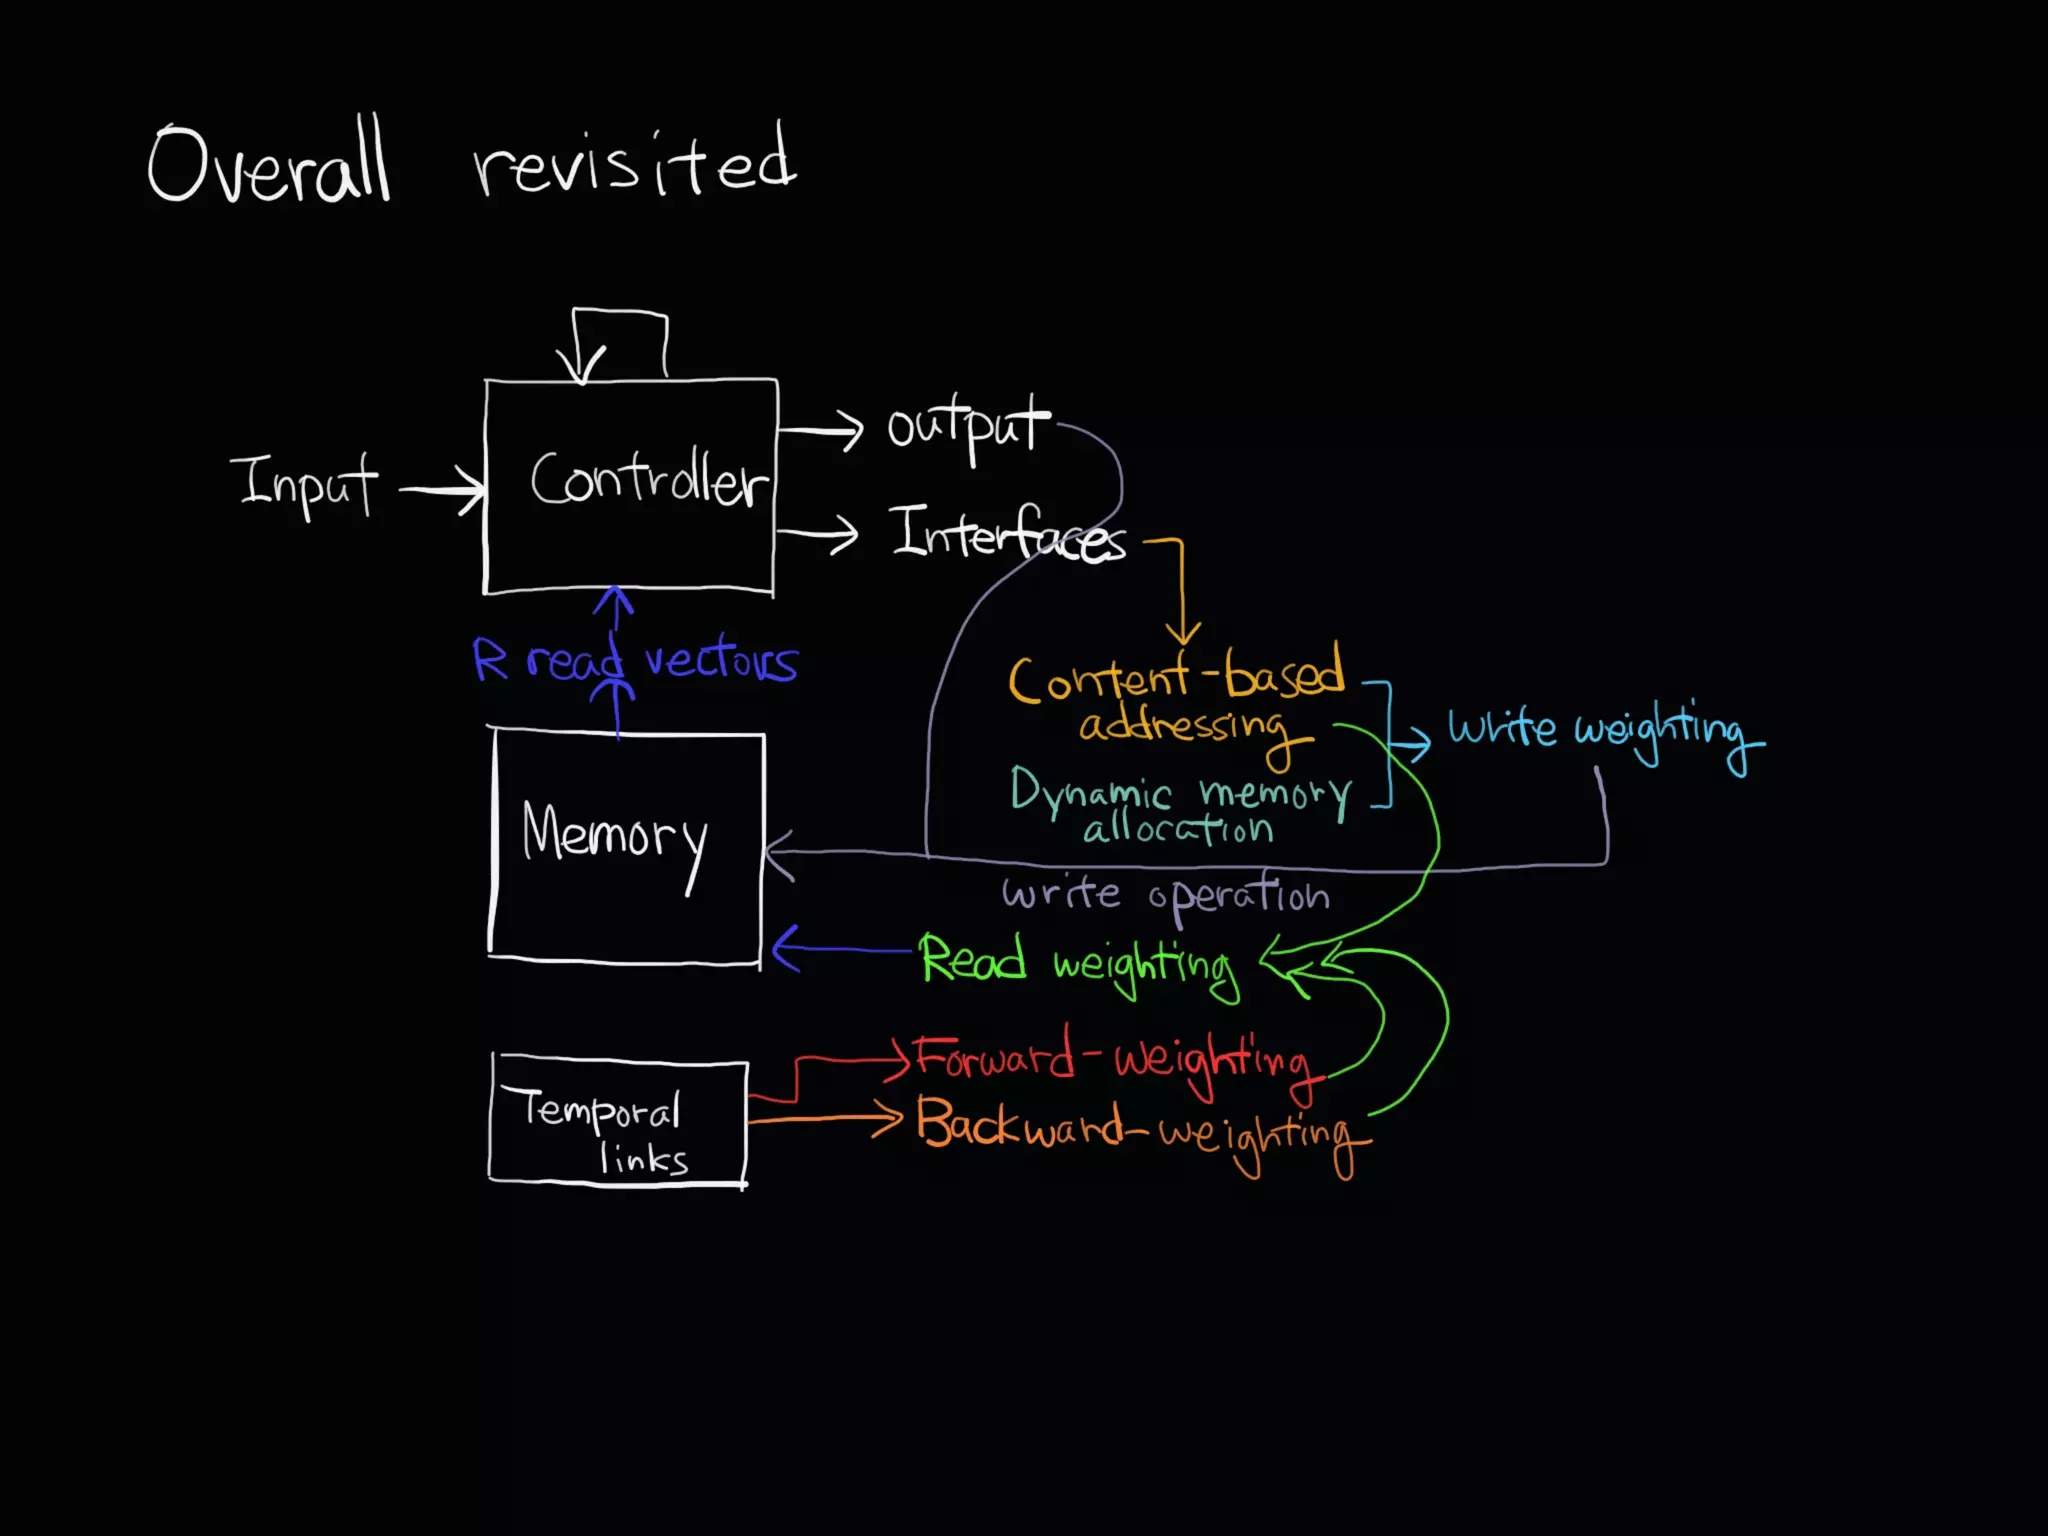 Overall revisited
output
Input
Controller
Interfaces
R read vectors
Content-based
addressing
Write weighting
Dynamic memory
allocation
Memory
write operation
Read weighting
Forward-weighting
Temporal
links
Backward-weighting